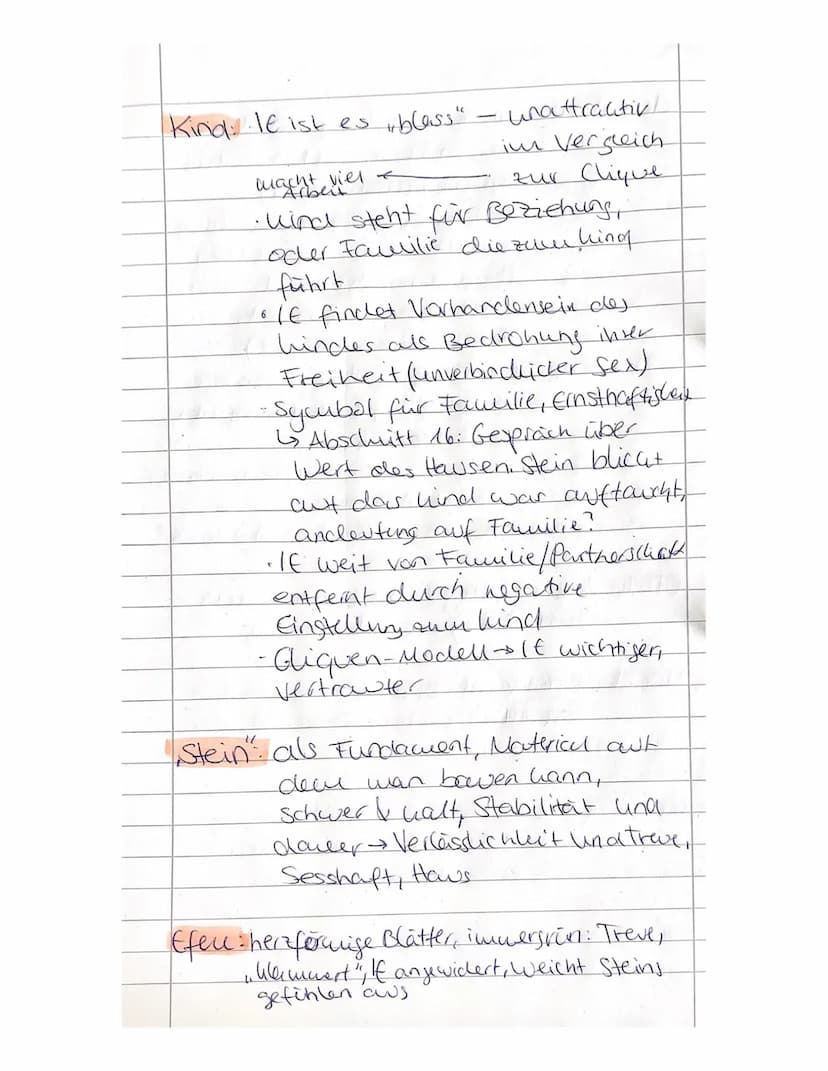 Kind: IE ist es „blass" – unattraktiv
im Vergleich
macht viel ← zur Clique
Arbeit
· Kind steht für Beziehung,
oder Familie die zum Kind
führt
· IE findet Vorhandensein des
Kindes als Bedrohung ihrer
Freiheit (unverbindlicher Sex)
- Symbol für Familie, Ernsthaftigkeit
↳ Abschnitt 16: Gespräch über
Wert des Hauses. Stein blickt
auf das Kind was auftaucht,
andeutung auf Familie?
· IE weit von Familie/Partnerschaft
entfernt durch negative
Einstellung zum Kind
- Cliquen-Modell → IE wichtiger,
vertrauter
„Stein": als Fundament, Material auf
dem man bauen kann,
schwer & kalt, Stabilität und
dauer → Verlässlichkeit und treue,
Sesshaft, Haus
Efeu: herzförmige Blätter, immergrün: Treue,
IE angewidert, weicht Steins
gefühlen aus